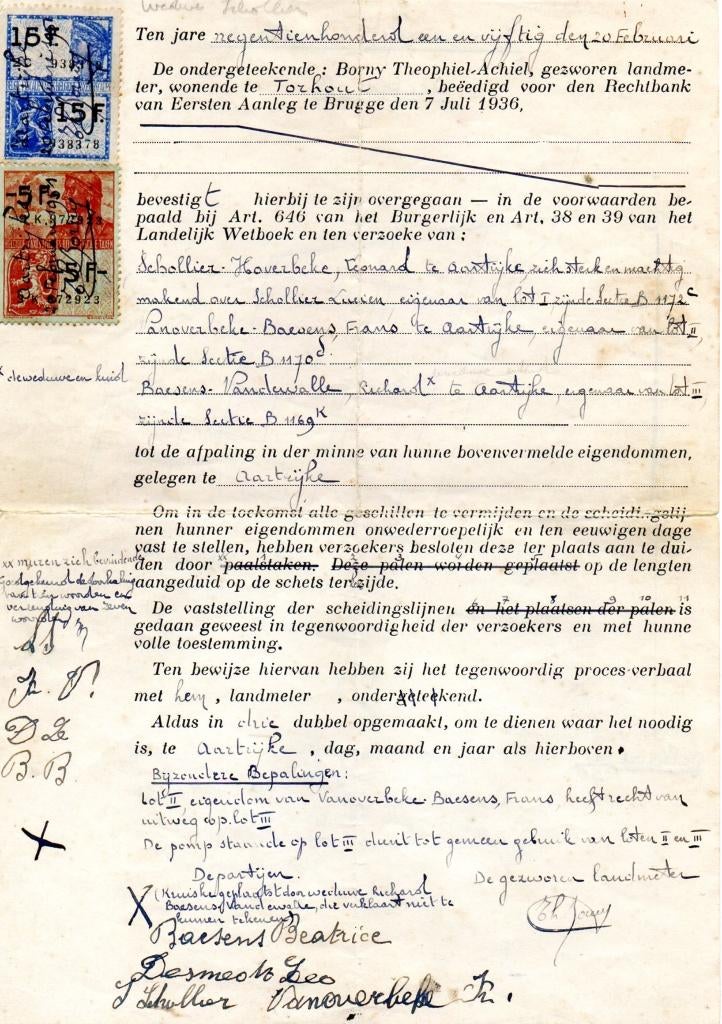 Weduwe Schollier
Ten jare negentienhonderd een en vijftig den 20 Februari
De ondergeteekende : Borny Theophiel-Achiel, gezworen landme-
ter, wonende te Torhout, beëedigd voor den Rechtbank
van Eersten Aanleg te Brugge den 7 Juli 1936,
15 F.
15 F.
938378
bevestigt hierbij te zijn overgegaan — in de voorwaarden be-
paald bij Art. 646 van het Burgerlijk en Art. 38 en 39 van het
Landelijk Wetboek en ten verzoeke van :
-5 F-
K.872923
5 F-
K.872923
Schollier-Haverbeke, Leonard te Aartrijke zich sterk en machtig
makend over Schollier Lucien eigenaar van lot I zijnde Sectie B 1172c
Vanoverbeke-Baesens, Frans te Aartrijke, eigenaar van lot II,
zijnde Sectie B 1170d.
x de weduwe en kind
Baesens-Vandewalle, Richard x te Aartrijke, eigenaar van lot III
zijnde Sectie B 1169K
tot de afpaling in der minne van hunne bovenvermelde eigendommen,
gelegen te Aartrijke
Om in de toekomst alle geschillen te vermijden en de scheidingslij-
nen hunner eigendommen onwederroepelijk en ten eeuwigen dage
vast te stellen, hebben verzoekers besloten deze ter plaats aan te dui-
den door xx paalstaken. Deze palen worden geplaatst op de lengten
aangeduid op de schets terzijde.
xx muren zich bevindende
Goedgekeurd de doorhaling
van elf woorden en
verlenging van zeven
woorden
De vaststelling der scheidingslijnen en het plaatsen der palen is
gedaan geweest in tegenwoordigheid der verzoekers en met hunne
volle toestemming.
Ten bewijze hiervan hebben zij het tegenwoordig proces-verbaal
met hem, landmeter, onderteekend.
Fr. V.
D Le
B. B.
Aldus in drie dubbel opgemaakt, om te dienen waar het noodig
is, te Aartrijke, dag, maand en jaar als hierboven.
Byzondere Bepalingen:
Lot II, eigendom van Vanoverbeke-Baesens, Frans, heeft recht van
uitweg op lot III
De pomp staande op lot III dient tot gemeen gebruik van loten II en III
De partijen. De gezworen landmeter
X (Kruiske geplaatst door weduwe Richard
Baesens-Vandewalle, die verklaart niet te
kunnen tekenen)
Th Borny
Baesens Beatrice
Desmedt Leo
Schollier Vanoverbeke Fr.